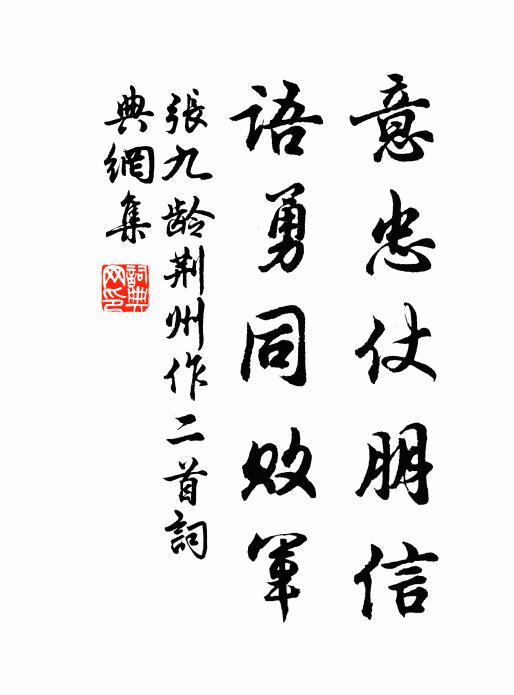 意忠仗朋信
語勇同败軍
張九龄荆州作二首詞
典網集
詞典网印